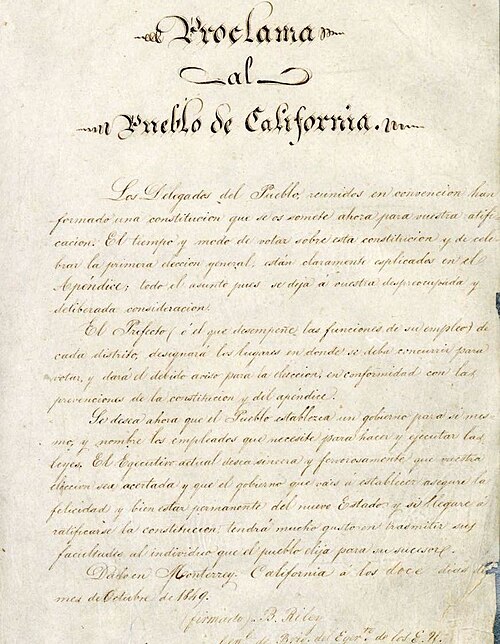 Proclama
al
Pueblo de California.
Los Delegados del Pueblo, reunidos en convencion han
formado una constitucion que se os somete ahora para vuestra atifi-
cacion. El tiempo y modo de votar sobre esta constitucion y de cele-
brar la primera eleccion general, están claramente esplicados en el
Apéndice; todo el asunto pues se deja á vuestra despreocupada y
deliberada consideracion.
El Prefecto (ó el que desempeñe las funciones de su empleo) de
cada distrito, designará los lugares en donde se deba concurrir para
votar, y dará el debido aviso para la eleccion, en conformidad con las
prevenciones de la constitucion y del apéndice.
Se desea ahora que el Pueblo establezca un gobierno para si mes-
mo, y nombre los empleados que necesite para hacer y ejecutar las
leyes. El Ejecutivo actual desea sincera y fervorosamente, que vuestra
eleccion sea acertada y que el gobierno que vais á establecer asegure la
felicidad y bien estar permanente del nuevo Estado; y si llegare á
ratificarse la constitucion, tendrá mucho gusto en trasmitir sus
facultades al individuo que el pueblo elija para su sucesor.
Dado en Monterrey, California á los doce dias del
mes de Octubre de 1849.
(firmado) B. Riley
de Brid. del Egerto. de los E. U.